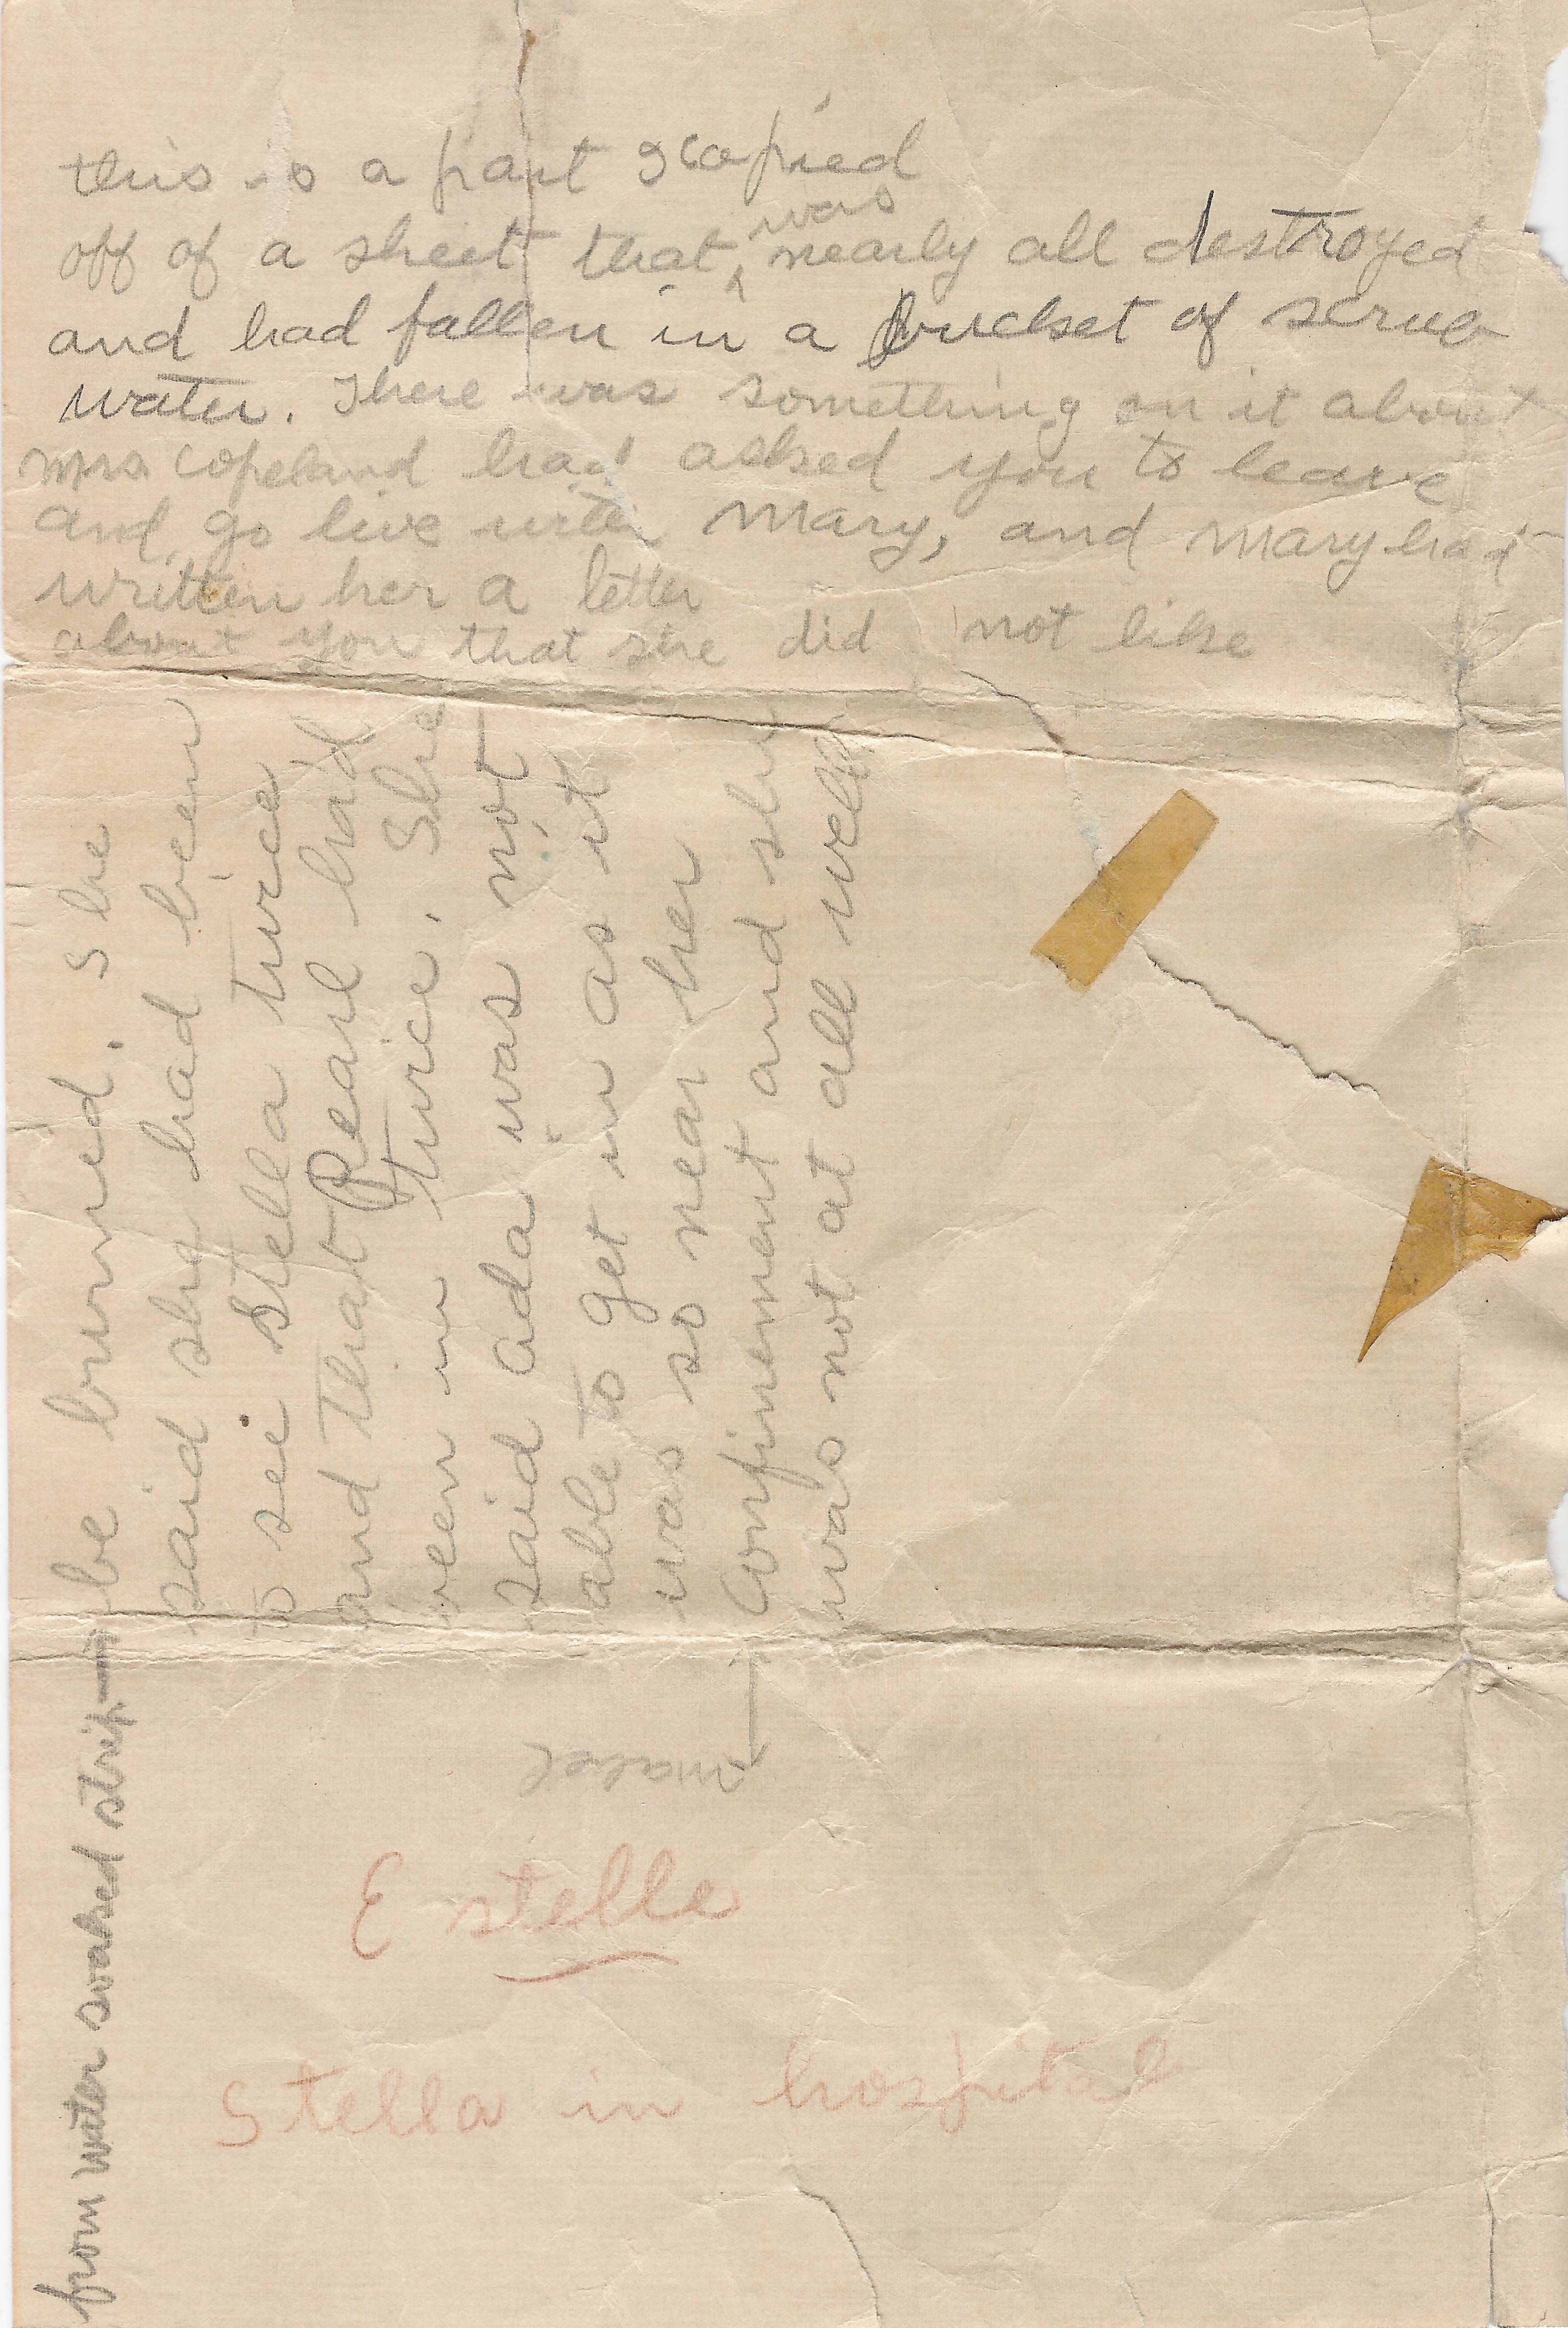 this is a part I copied
off of a sheet that was nearly all destroyed
and had fallen in a bucket of scrub
water. There was something on it about
Mrs. Copeland had asked you to leave
and go live with Mary, and Mary had
written her a letter
about you that she did not like
from water soaked strip— be burned. She
said she had been
to see Stella twice
and that Pearl had
been in twice. She
said Ada was not
able to get in as it
was so near her
confinement and she
was not at all well
Mabel
Estelle
Stella in hospital